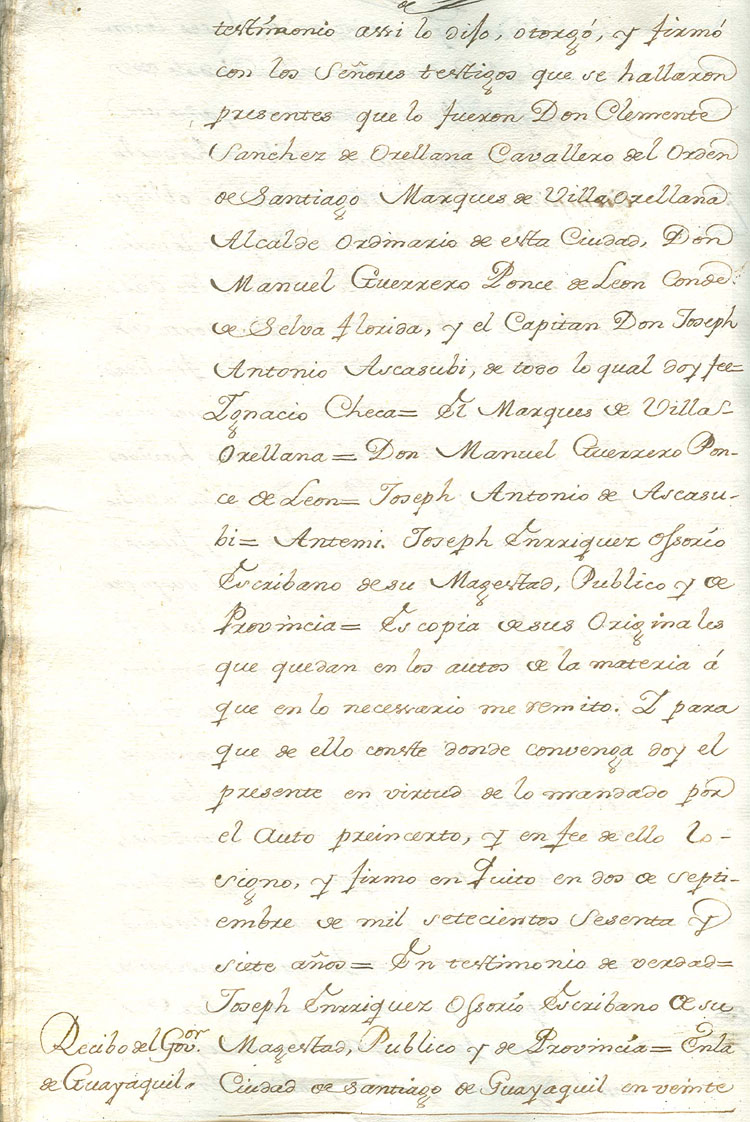 testimonio assi lo dijo, otorgó, y firmó
con los Señores testigos que se hallaron
presentes que lo fueron Don Clemente
Sanchez de Orellana Cavallero del Orden
de Santiago Marques de Villa Orellana
Alcalde Ordinario de esta Ciudad, Don
Manuel Guerrero Ponce de Leon Conde
de Selva florida, y el Capitan Don Joseph
Antonio Ascasubi, de todo lo qual doy fee=
Ygnacio Checa= El Marques de Villa-
Orellana= Don Manuel Guerrero Pon-
ce de Leon= Joseph Antonio de Ascasu-
bi= Antemi. Joseph Enrriquez Ossorio
Escribano de su Magestad, Publico y de
Provincia= Es copia de sus Originales
que quedan en los autos de la materia á
que en lo necessario me remito. Y para
que de ello conste donde convenga doy el
presente en virtud de lo mandado por
el Auto preincerto, y en fee de ello lo-
signo, y firmo en Quito en dos de septi-
embre de mil setecientos Sesenta y
siete años= En testimonio de verdad=
Joseph Enrriquez Ossorio Escribano de su
Magestad, Publico y de Provincia= Enla
Ciudad de Santiago de Guayaquil en veinte
Recibo del Gov.or
de Guayaquil.